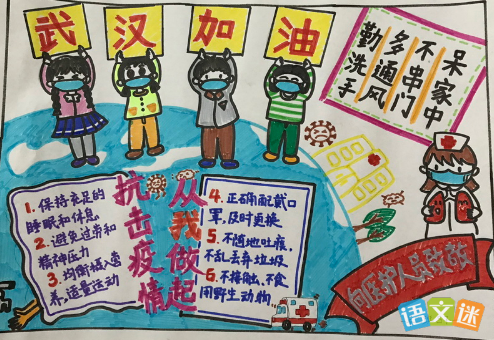 武汉加油
呆家中
不串门
多通风
勤洗手
抗击疫情
从我做起
1. 保持充足的
睡眠和休息。
2. 避免过劳和
精神压力
3. 均衡
养,适量运动
4. 正确配戴口
罩,及时更换
5. 不随地吐痰,
不乱丢弃垃圾
6. 不接触、不食
用野生动物
向医护人员致敬
语文迷